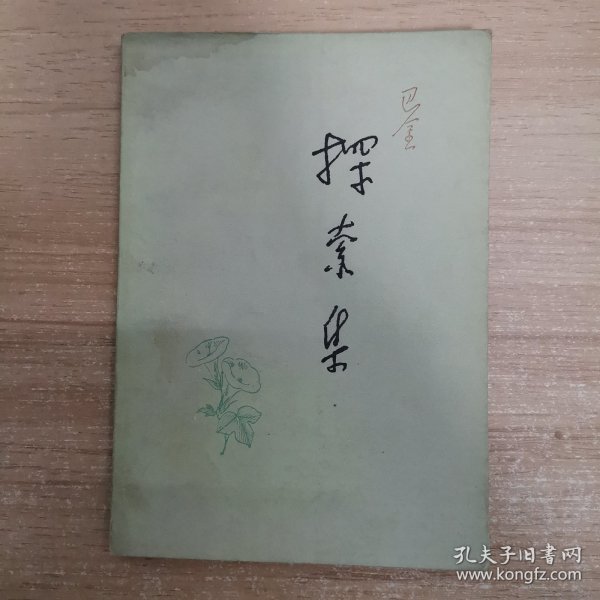 巴金
探索集
孔夫子旧书网
www.kongfz.com